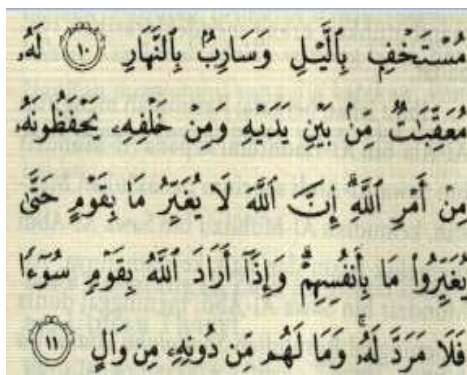 مُسْتَخْفٍ بِٱلَّيْلِ وَسَارِبٌۢ بِٱلنَّهَارِ ١٠ لَهُۥ
مُعَقِّبَٰتٌ مِّنۢ بَيْنِ يَدَيْهِ وَمِنْ خَلْفِهِۦ يَحْفَظُونَهُۥ
مِنْ أَمْرِ ٱللَّهِۗ إِنَّ ٱللَّهَ لَا يُغَيِّرُ مَا بِقَوْمٍ حَتَّىٰ
يُغَيِّرُوا۟ مَا بِأَنفُسِهِمْۗ وَإِذَآ أَرَادَ ٱللَّهُ بِقَوْمٍ سُوٓءًا
فَلَا مَرَدَّ لَهُۥۚ وَمَا لَهُم مِّن دُونِهِۦ مِن وَالٍ ١١